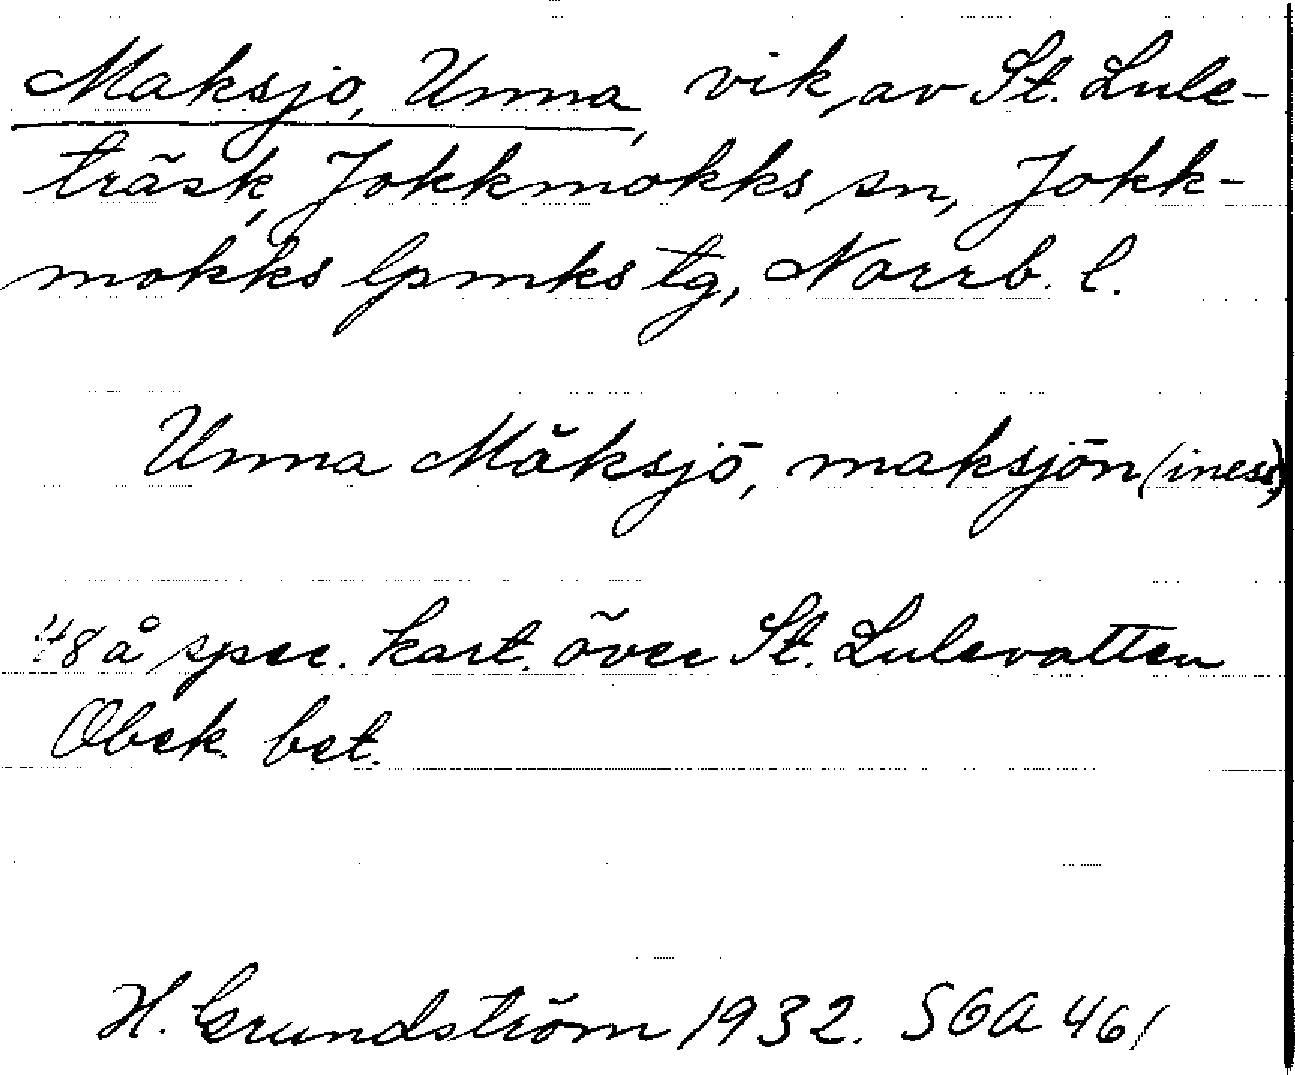 Maksjo, Unna, vik av St. Lule-
träsk, Jokkmokks sn, Jokk-
mokks lpmks tg, Norrb. l.
Unna Măksjō, maksjōn (iness)
48 å spec. kart. över St. Lulevatten
Obek. bet.
H. Grundström 1932. SOA 461